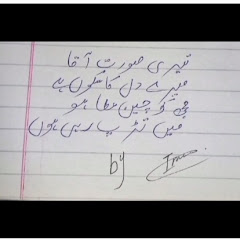 تیری صورت آقا
میرے دل کا سکون ہے
کو چین عطا ہو
میں تڑپ رہی ہوں
by